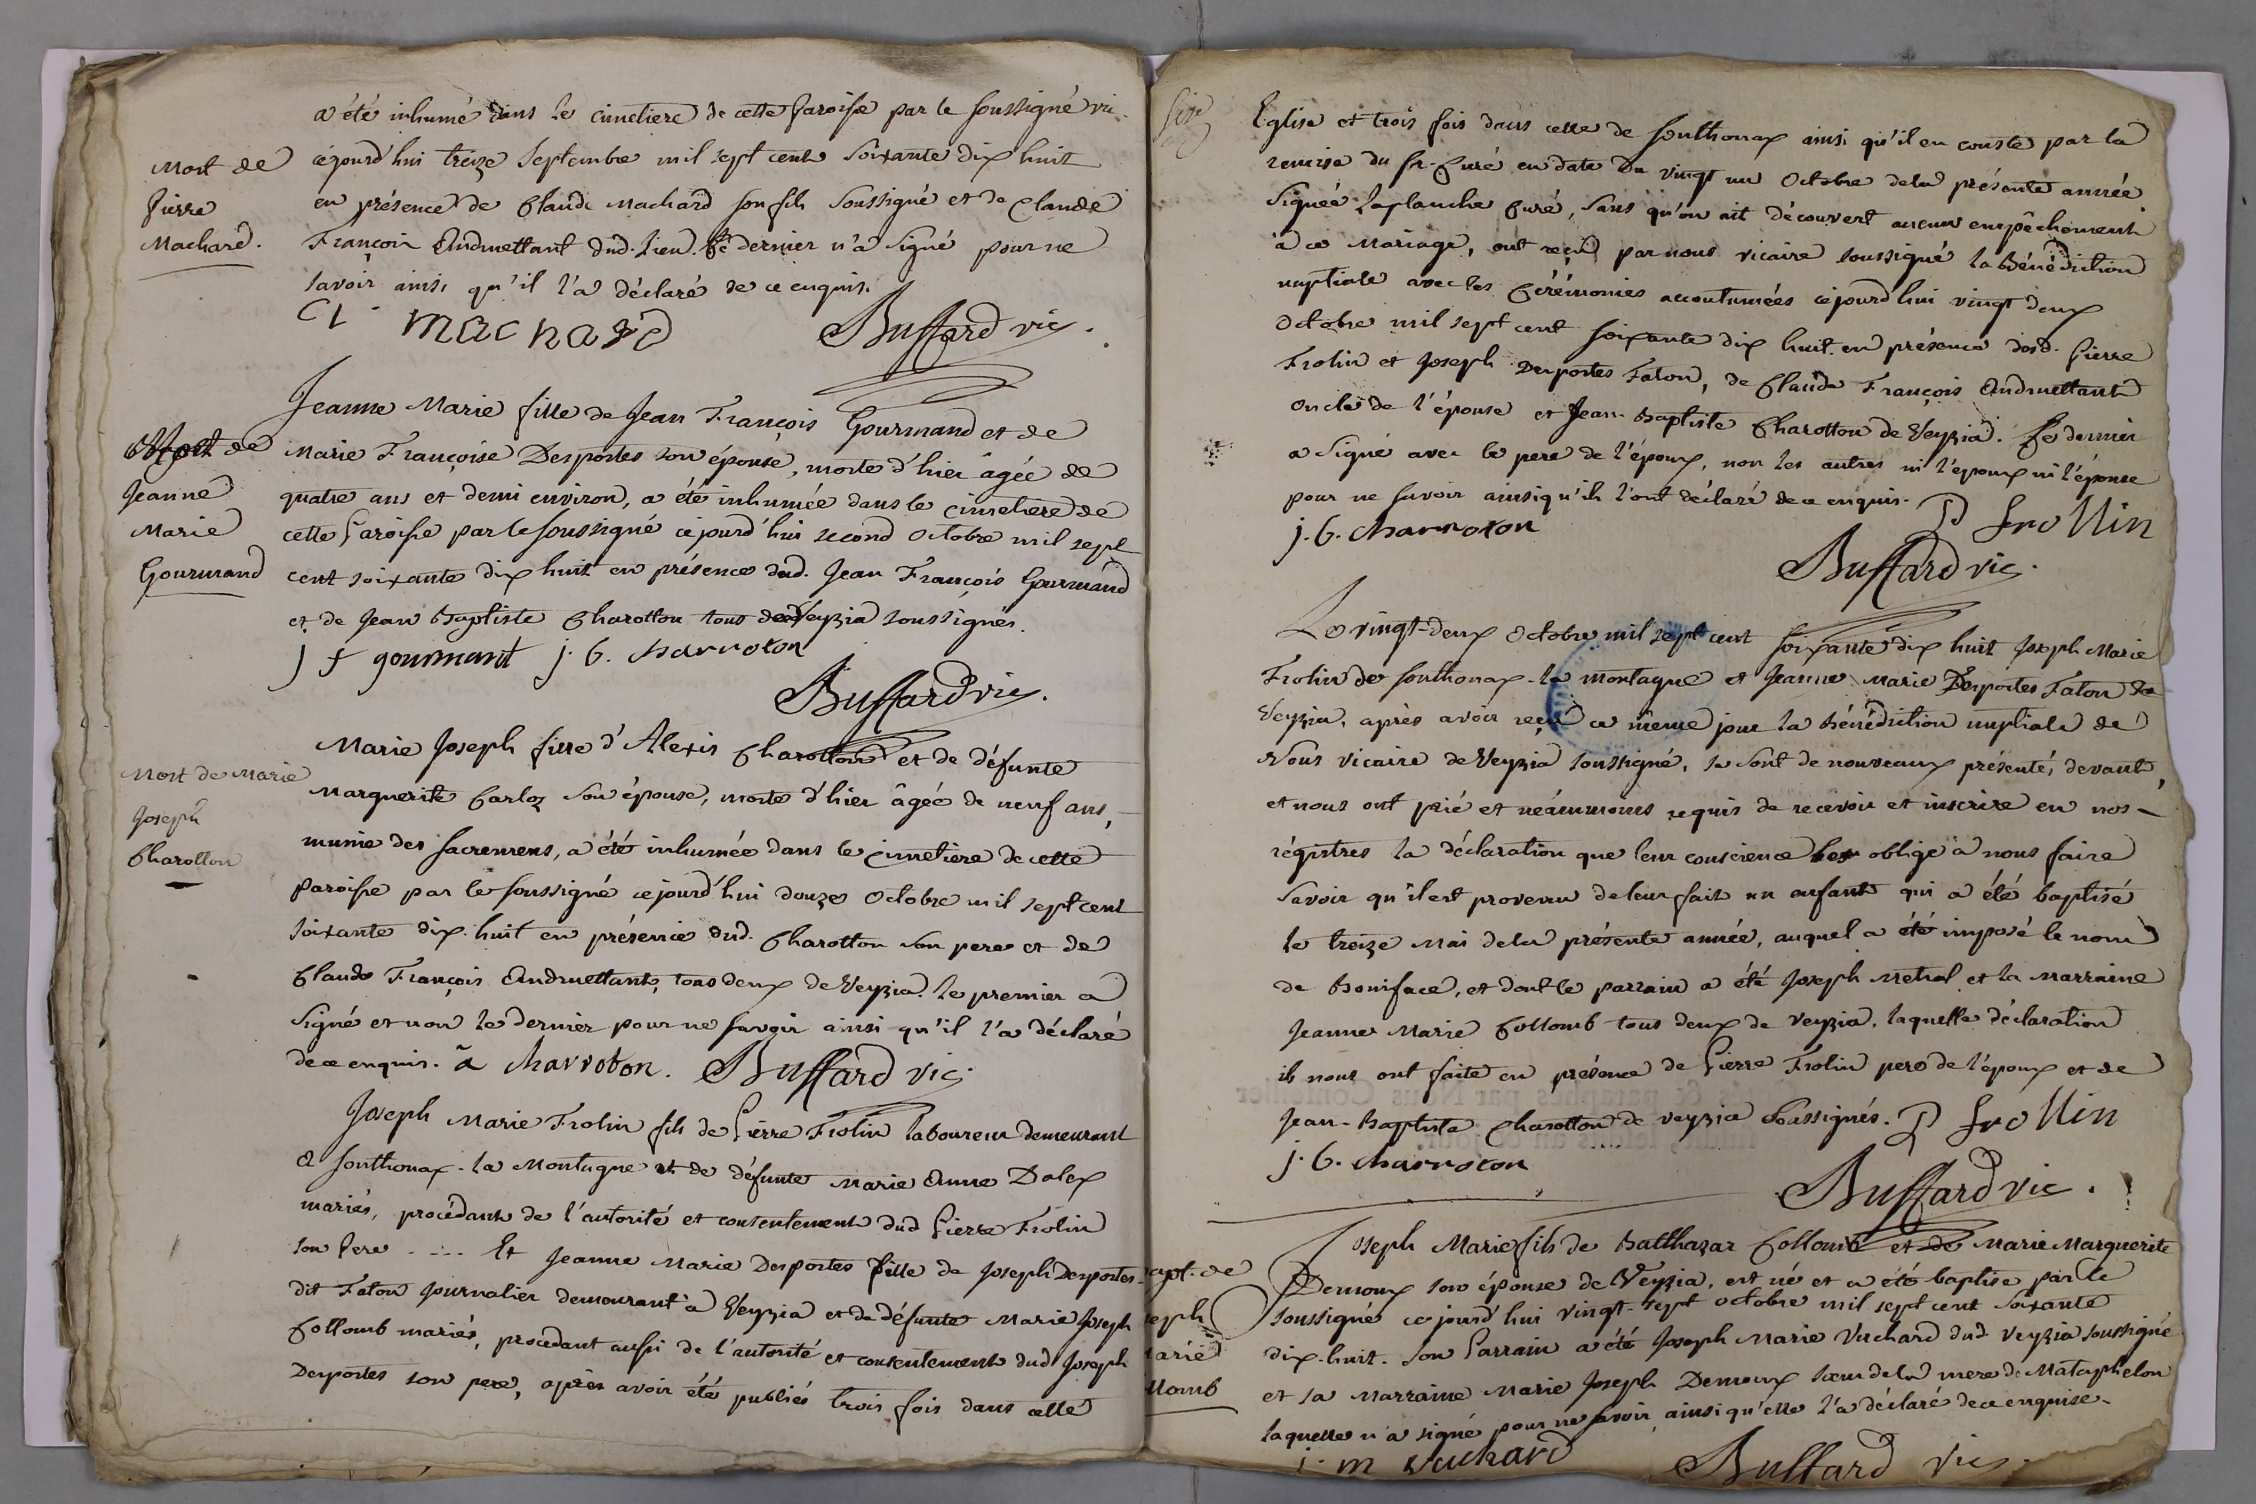 a été inhumé dans le cimetiere de cette Paroisse par le soussigné vic.
Mort de
Pierre
Machard.
cejourd'hui treize Septembre mil sept cent soixante dix huit
en présence de Claude Machard son fils soussigné et de Claude
François Andruettant dud. lieu. Ce dernier n'a signé pour ne
savoir ainsi qu'il l'a déclaré de ce enquis.
Cl machard Buffard vic.
Jeanne Marie fille de Jean François Gourmand et de
Mort de
Jeanne
Marie
Gourmand
Marie Françoise Desportes son épouse, morte d'hier âgée de
quatre ans et demi environ, a été inhumée dans le cimetiere de
cette Paroisse par le soussigné cejourd'hui second Octobre mil sept
cent soixante dix huit en présence dud. Jean François Gourmand
et de Jean Baptiste Charotton tous de Veyzia soussignés.
j f gourmant j. b. charroton
Buffard vic.
Marie Joseph fille d'Alexis Charotton et de défunte
Mort de Marie
Joseph
Charotton
Marguerite Carloz son épouse, morte d'hier âgée de neuf ans,
munie des sacremens, a été inhumée dans le cimetiere de cette
paroisse par le soussigné cejourd'hui douze Octobre mil sept cent
soixante dix-huit en présence dud. Charotton son pere et de
Claude François Andruettant, tous deux de Veyzia. le premier a
signé et non le dernier pour ne savoir ainsi qu'il l'a déclaré
de ce enquis. a charroton. Buffard vic.
Joseph Marie Frolin fils de Pierre Frolin laboureur demeurant
à Sonthonax-la Montagne et de défunte Marie Anne Dalex
mariés, procédant de l'autorité et consentement dud Pierre Frolin
son Pere .... Et Jeanne Marie Desportes fille de Joseph Desportes-
dit Faton journalier demeurant à Veyzia et de défunte Marie Joseph
Collomb mariés, procedant aussi de l'autorité et consentement dud Joseph
Desportes son pere, après avoir été publiés trois fois dans cette
Eglise et trois fois dans celle de Sonthonax ainsi qu'il en conste par la
remise du Sr. Curé en date du vingt un Octobre de la présente année
signée Laplanche Curé, sans qu'on ait découvert aucun empêchement
à ce Mariage, ont reçu par nous vicaire soussigné la Bénédiction
nuptiale avec les Cérémonies accoutumées cejourd'hui vingt deux
Octobre mil sept cent soixante dix huit en présence desd. Pierre
Frolin et Joseph Desportes Faton, de Claude François Andruettant
oncle de l'épouse et Jean-Baptiste Charotton de Veyzia. Le dernier
a signé avec le pere de l'époux, non les autres ni l'époux ni l'épouse
pour ne savoir ainsi qu'ils l'ont déclaré de ce enquis. P frollin
j. b. charroton
Buffard vic.
Le vingt-deux Octobre mil sept cent soixante dix huit Joseph Marie
Frolin de Sonthonax-la montagne et Jeanne Marie Desportes Faton de
Veyzia, après avoir reçu ce même jour la bénédiction nuptiale de
Nous vicaire de Veyzia soussigné, se sont de nouveaux présenté, devant,
et nous ont prié et néammoins requis de recevoir et inscrire en nos
régistres la déclaration que leur conscience les oblige à nous faire
savoir qu'il est provenu de leur fait un enfant qui a été baptisé
le treize Mai de la présente année, auquel a été imposé le nom
de Boniface, et dont le parrain a été Joseph Metral et la Marraine
Jeanne Marie Collomb tous deux de Veyzia, laquelle déclaration
ils nous ont faite en présence de Pierre Frolin pere de l'époux et de
Jean-Baptiste Charotton de veyzia soussignés. P frollin
j. b. charroton
Buffard vic.
Joseph Marie fils de Balthazar Collomb et de Marie Marguerite
apt. de
seph
Marie
llomb
Demoux son épouse de Veyzia, est né et a été baptisé par le
soussigné cejourd'hui vingt-sept octobre mil sept cent soixante
dix-huit. Son Parrain a été Joseph Marie Vuchard dud Veyzia soussigné
et sa Marraine Marie Joseph Demoux soeur de la mere de Mataphelon
laquelle n'a signé pour ne savoir ainsi qu'elle l'a déclaré de ce enquise.
j. m vuchard Buffard vic.